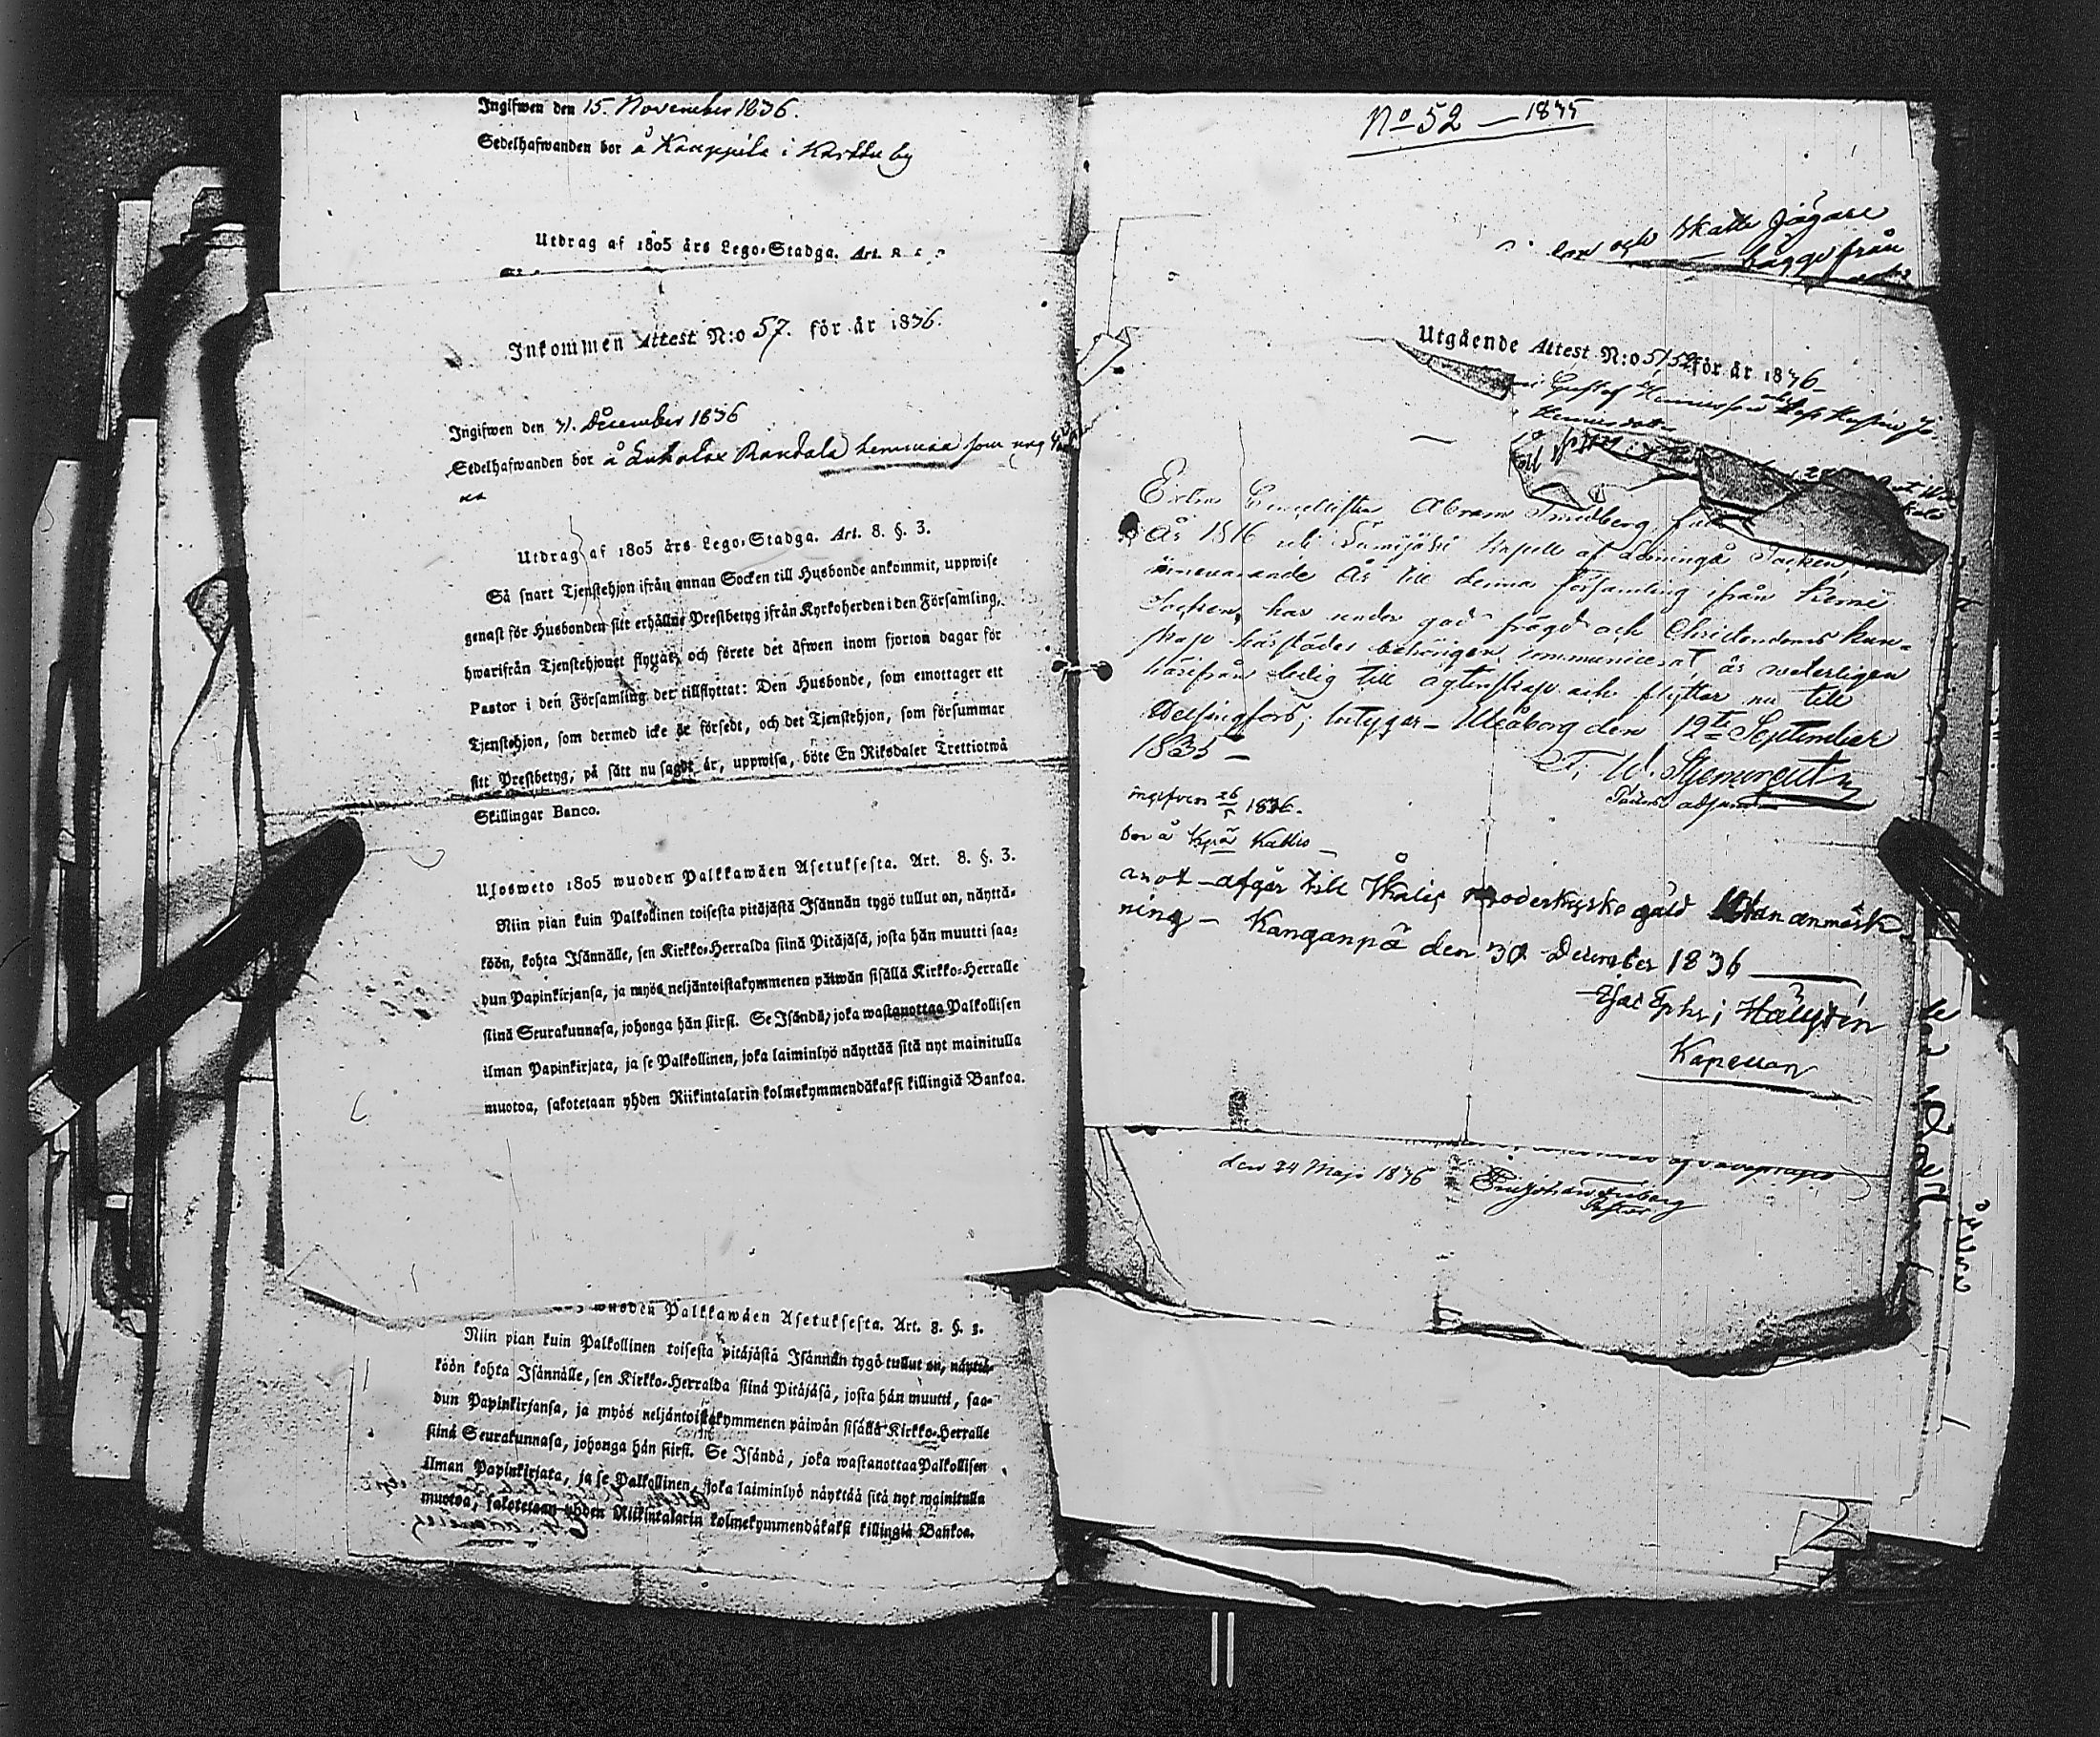 Ingifwen den 15. November 1836.
Sedelhafwanden bor å Kauppila i Karttu by
Utdrag af 1805 års Lego-Stadga. Art.
Inkommen Attest N:o 57. för år 1836.
Ingifwen den 31. December 1836
Sedelhafwanden bor å Randala som
Utdrag af 1805 års Lego-Stadga. Art. 8. §. 3.
Så snart Tjenstehjon ifrån annan Socken till Husbonde ankommit, uppwise
genast för Husbonden sitt erhållne Prestbetyg ifrån Kyrkoherden i den Församling,
hwarifrån Tjenstehjonet flyttat, och förete det äfwen inom fjorton dagar för
Pastor i den Församling der tillflyttat: Den Husbonde, som emottager ett
Tjenstehjon, som dermed icke är försedt, och det Tjenstehjon, som försummar
sitt Prestbetyg, på sätt nu sagdt är, uppwisa, böte En Riksdaler Trettiotwå
Skillingar Banco.
Ulosweto 1805 wuoden Palkkawäen Asetuksesta. Art. 8. §. 3.
Niin pian kuin Palkollinen toisesta pitäjästä Isännän tygö tullut on, näyttä-
köön, kohta Isännälle, sen Kirkko-Herralda siinä Pitäjäsä, josta hän muutti saa-
dun Papinkirjansa, ja myös neljäntoistakymmenen päiwän sisällä Kirkko-Herralle
siinä Seurakunnasa, johonga hän siirsi. Se Isändä, joka wastanottaa Palkollisen
ilman Papinkirjata, ja se Palkollinen, joka laiminlyö näyttää sitä nyt mainitulla
muotoa, sakotetaan yhden Riikintalarin kolmekymmendäkaksi killingiä Bankoa.
wuoden Palkkawäen Asetuksesta. Art. 8. §. 3.
Niin pian kuin Palkollinen toisesta pitäjästä Isännän tygö tullut on, näyttä-
köön kohta Isännälle, sen Kirkko-Herralda siinä Pitäjäsä, josta hän muutti, saa-
dun Papinkirjansa, ja myös neljäntoistakymmenen päiwän sisällä Kirkko-Herralle
siinä Seurakunnasa, johonga hän siirsi. Se Isändä, joka wastanottaa Palkollisen
ilman Papinkirjata, ja se Palkollinen, joka laiminlyö näyttää sitä nyt mainitulla
muotoa, sakotetaan yhden Riikintalarin kolmekymmendäkaksi killingiä Bankoa.
No 52 — 1835
och Skatte Jägare
bägge från
Utgående Attest N:o 51/52 för år 1836
Gustaf Henriksson
Abram Smedberg, född
År 1816 uti Lumijoki Kapell af Limingå Socken,
innevarande År till denna församling ifrån Kemi
Socken, har under god frägd och Christendoms kun-
skap härstädes behörigen communicerat, är veterligen
härifrån ledig till ägtenskap och flyttar nu till
Helsingfors; betygar – Uleåborg den 12te September
1835 –
Pastors adjunct
ingifven 26/5 1836.
bor å Kallio
anot – afgår till moderkyrko gäld utan anmärk
ning – Kanganpä den 30 December 1836
Kapellan
den 24 Maji 1836
Pastor